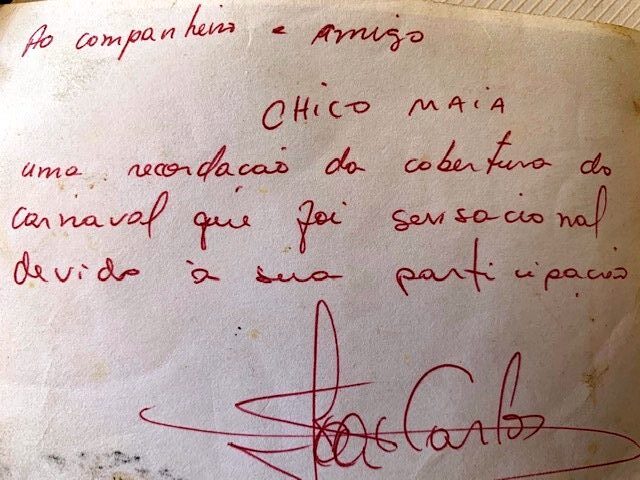 Ao companheiro e amigo
CHICO MAIA
uma recordacao da cobertura do
carnaval que foi sensacional
devido à sua participacao
Joao Carlos